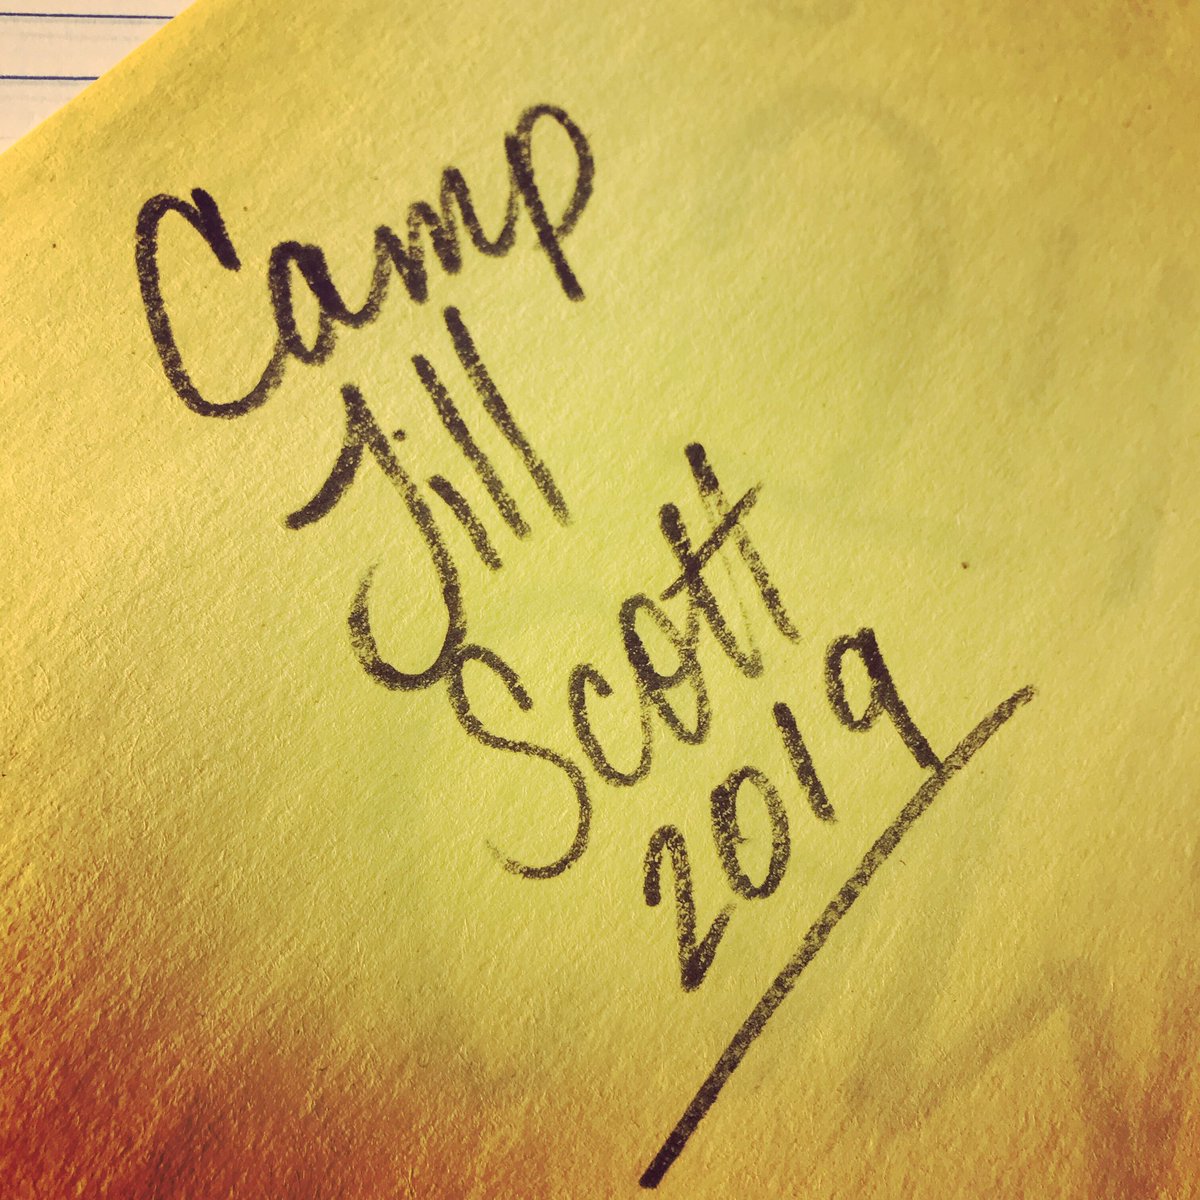 Camp
Jill
Scott
2019